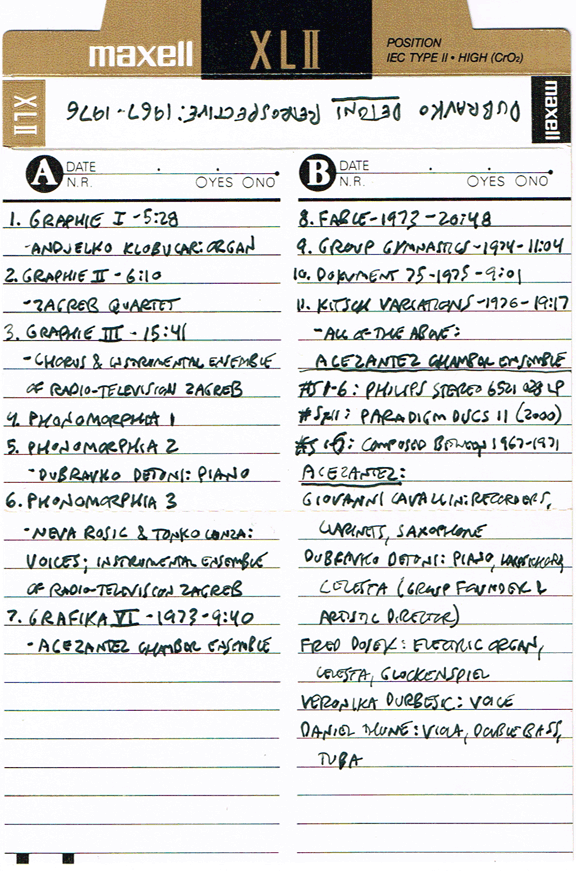 maxell XLII
POSITION
IEC TYPE II • HIGH (CrO₂)
XLII
DUBRAVKO DETONI RETROSPECTIVE: 1967-1976
maxell
A DATE
N.R. OYES ONO
1. GRAPHIE I - 5:28
-ANDJELKO KLOBUCAR: ORGAN
2. GRAPHIE II - 6:10
-ZAGREB QUARTET
3. GRAPHIE III - 15:41
-CHORUS & INSTRUMENTAL ENSEMBLE
OF RADIO-TELEVISION ZAGREB
4. PHONOMORPHIA 1
5. PHONOMORPHIA 2
-DUBRAVKO DETONI: PIANO
6. PHONOMORPHIA 3
-NEVA ROSIC & TONKO LONZA:
VOICES; INSTRUMENTAL ENSEMBLE
OF RADIO-TELEVISION ZAGREB
7. GRAFIKA VI - 1973-9:40
-ACEZANTEZ CHAMBER ENSEMBLE
B DATE
N.R. OYES ONO
8. FABLE-1973-20:48
9. GROUP GYMNASTICS-1974-11:04
10. DOKUMENT 75-1975-9:01
11. KITSCH VARIATIONS-1976-19:17
-ALL OF THE ABOVE:
ACEZANTEZ CHAMBER ENSEMBLE
#S 1-6: PHILIPS STEREO 6521 028 LP
: PARADIGM DISCS 11 (2000)
: COMPOSED BETWEEN 1967-1971
ACEZANTEZ:
GIOVANNI CAVALLIN: RECORDERS,
CLARINETS, SAXOPHONE
DUBRAVKO DETONI: PIANO, HARPSICHORD,
CELESTA (GROUP FOUNDER &
ARTISTIC DIRECTOR)
FRED DOSEK: ELECTRIC ORGAN,
CELESTA, GLOCKENSPIEL
VERONIKA DURBESIC: VOICE
DANIEL THUNE: VIOLA, DOUBLE BASS,
TUBA